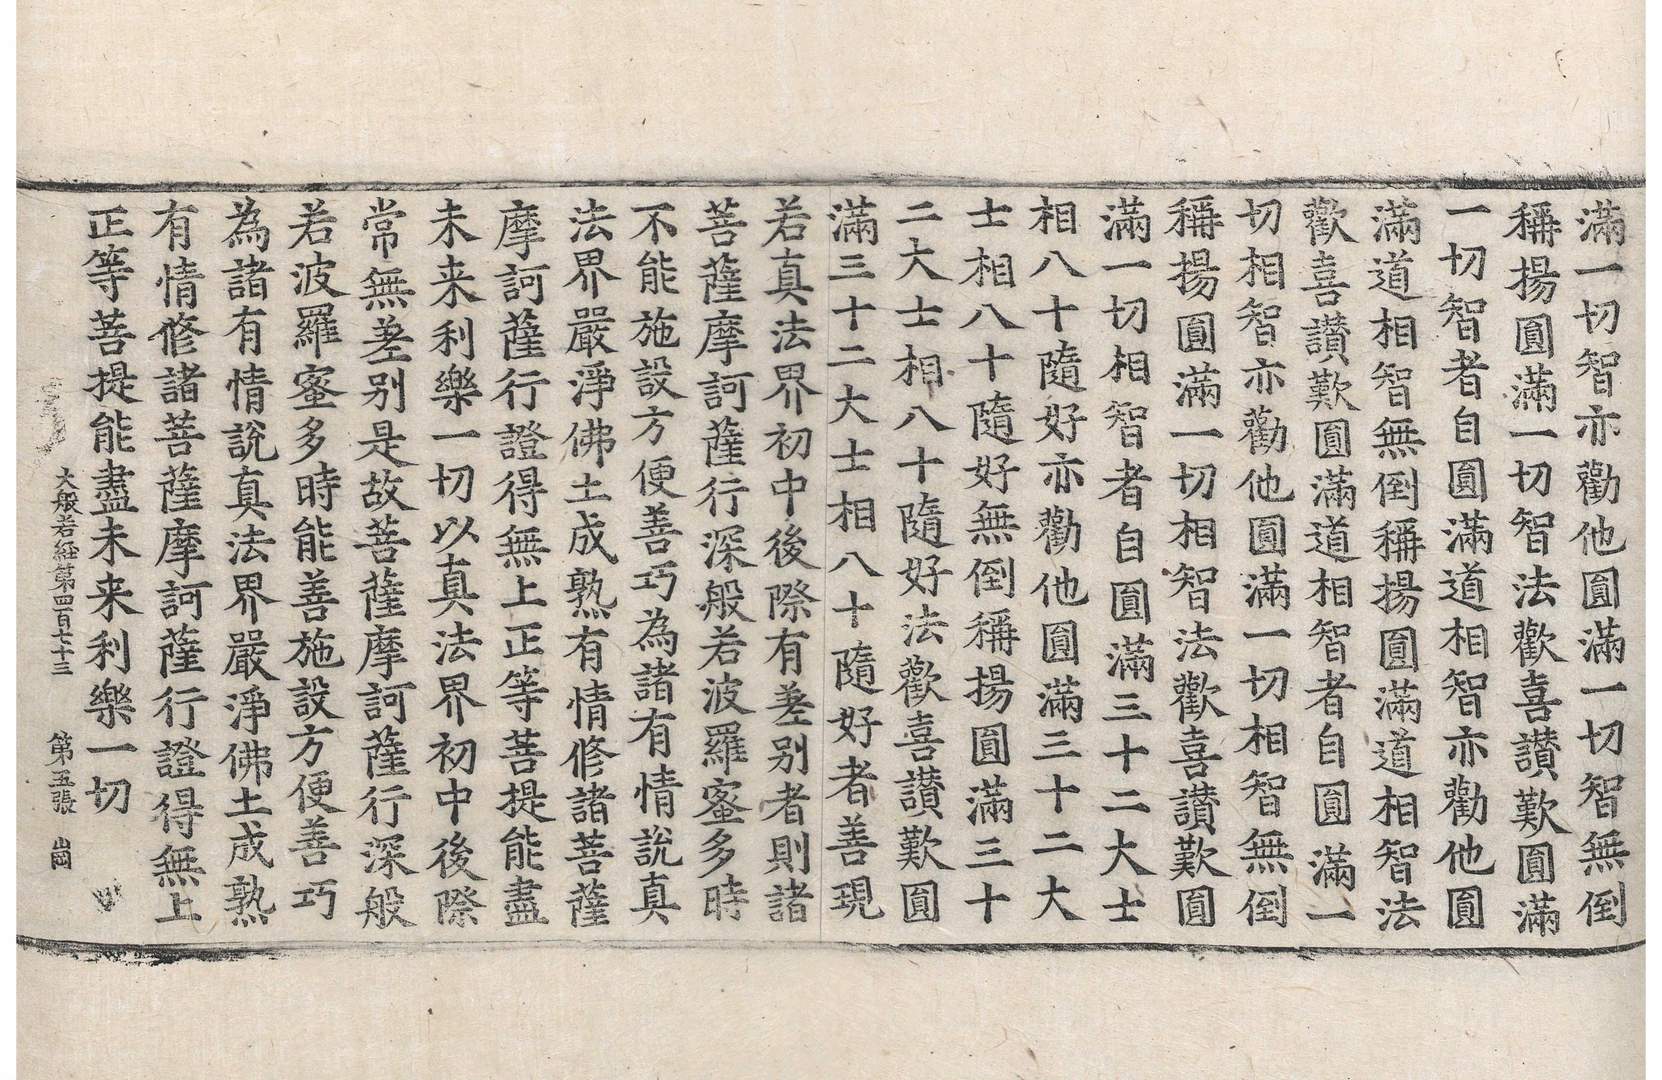 滿一切智亦勸他圓滿一切智無倒
稱揚圓滿一切智法歡喜讃歎圓滿
一切智者自圓滿道相智亦勸他圓
滿道相智無倒稱揚圓滿道相智法
歡喜讃歎圓滿道相智者自圓滿一
切相智亦勸他圓滿一切相智無倒
稱揚圓滿一切相智法歡喜讃歎圓
滿一切相智者自圓滿三十二大士
相八十隨好亦勸他圓滿三十二大
士相八十隨好無倒稱揚圓滿三十
二大士相八十隨好法歡喜讃歎圓
滿三十二大士相八十隨好者善現
若真法界初中後際有差别者則諸
菩薩摩訶薩行深般若波羅蜜多時
不能施設方便善巧為諸有情說真
法界嚴淨佛土成熟有情修諸菩薩
摩訶薩行證得無上正等菩提能盡
未来利樂一切以真法界初中後際
常無差别是故菩薩摩訶薩行深般
若波羅蜜多時能善施設方便善巧
為諸有情說真法界嚴淨佛土成熟
有情修諸菩薩摩訶薩行證得無上
正等菩提能盡未来利樂一切
大般若経第四百七十三 第五張 崗